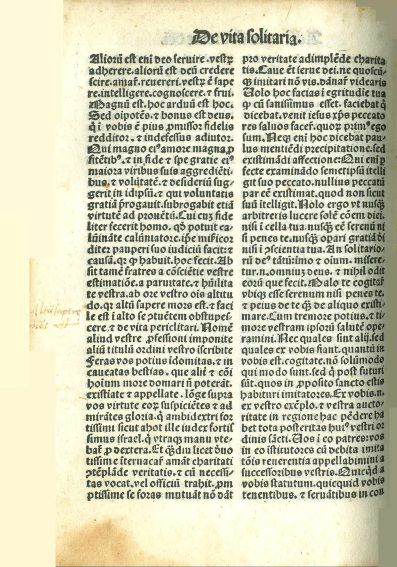 De vita solitaria.
Aliorũ est eni deo seruire. vestrũ
adherere. aliorũ est deũ credere
scire. amare. reuereri. vestrũ ẽ sape
re. intelligere. cognoscere. ⁊ frui.
Magnũ est. hoc arduũ est hoc.
Sed oĩpotẽs. ⁊ bonus est deus.
qui magno amore magna
fitẽtibus. ⁊ in fide ⁊ spe gratie
maiora viribus suis aggrediẽti
bus. ⁊ volũtatẽ. ⁊ desideriũ sug
gerit in idipsũ. ⁊ qui voluntatis
gratiã prerogauit. subrogabit etiã
virtutẽ ad prouentũ.
liter fecerit homo. quod potuit ca
lũniato calumniator.
diter pauperi suo iudiciũ faciet. ⁊
causã. quia quod habuit. hoc fecit. Ab
sit tamẽ fratres a cõsciẽtie vestre
estimatiõe. a paruitate. ⁊ hũilita
te vestra. ab ore vestro ois altitu
do. quia altũ sapere mors est. ⁊ faci
le est ĩ alto se
cere. ⁊ de vita periclitari. Nomẽ
aliud vestre professioni imponite
aliũ titulũ ordini vestro iscribite
Feras vos potius idomitas. ⁊ in
caueatas bestias. que aliter ⁊ cõi
hoĩum more domari nõ poterãt.
existĩate ⁊ appellate. lõge supra
vos virtute eorum suspiciẽtes ⁊ ad
mirãtes gloriã. quia ambidextri for
tissimi sicut ahot ille iudex fortis
simus israel. quia vtraque manu vte
bat pro dextera. Et quãdiu licet deuo
tissime ĩternuacãt amãt charitati
contẽplãde veritatis. ⁊ cũ necessi
tas vocat. vel officiũ trahit. prom
ptissime se foras mutuãt nõ dãt
pro veritate adimplẽde charita
tis. Caue etiam serue dei. ne quoscũ
que imitari nõ vis. dãnare videaris
Nolo hoc facias ĩ egritudie tua
quod cũ sanissimus esset. faciebat qui
dicebat. venit iesus xps peccato
res saluos facere. quorum primus ego
sum. Neque eni hoc dicebat pau
lus mentiẽdi precipitatione. sed
existimãdi affectione. Qui eni per
fecte examinãdo semetipsũ itelli
git suo peccato. nullius peccatũ
par eẽ existimat. quod non sicut
suũ itelligit. Nolo ergo vt nusquã
arbitreris lucere solẽ cõem diei.
nisi ĩ cella tua. nusquã eẽ serenũ ni
si penes te. nusquã opari gratiã di
nisi ĩ pcientia tua. An solitario
rũ de tãtũmo ⁊ oium. misere
tur. n. omnium deus. ⁊ nihil odit
eorũ que fecit. Malo te cogitare
vbique esse serenum nisi penes te.
⁊ peius de te quã de aliquo existi
mare. Cum tremore potius. ⁊ ti
more vestram ipsorũ salutẽ ope
ramini. Nec quales sunt alij. sed
quales ex vobis fiant. quantũ in
vobis est. cogitate. nõ solũmodo
qui modo sunt. sed qui post futuri
sũt. quos in proposito sancto estis
habituri imitatores. Ex vobis. n.
ex vestro exẽplo. ⁊ vestra aucto
ritate in regione hac pẽdere ha
bet tota posteritas huius vestri or
dinis sãcti. Vos ĩ eo patres. vos
in eo istitutores cũ debita imita
tõis reuerẽtia appellabimini a
successoribus vestris. Quicquid a
vobis statutum. quicquid vobis
tenentibus. ⁊ seruãtibus in con